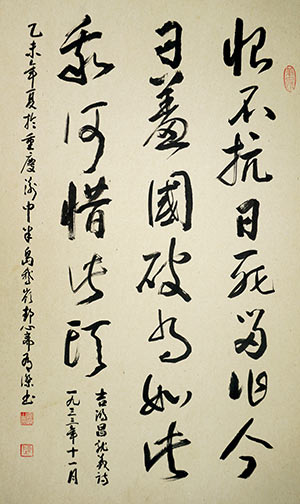 恨不抗日死留作今
日羞國破尚如此
我何惜此頭
吉鴻昌就義詩
一九三三年十一月
乙未年夏於重慶渝中半島書